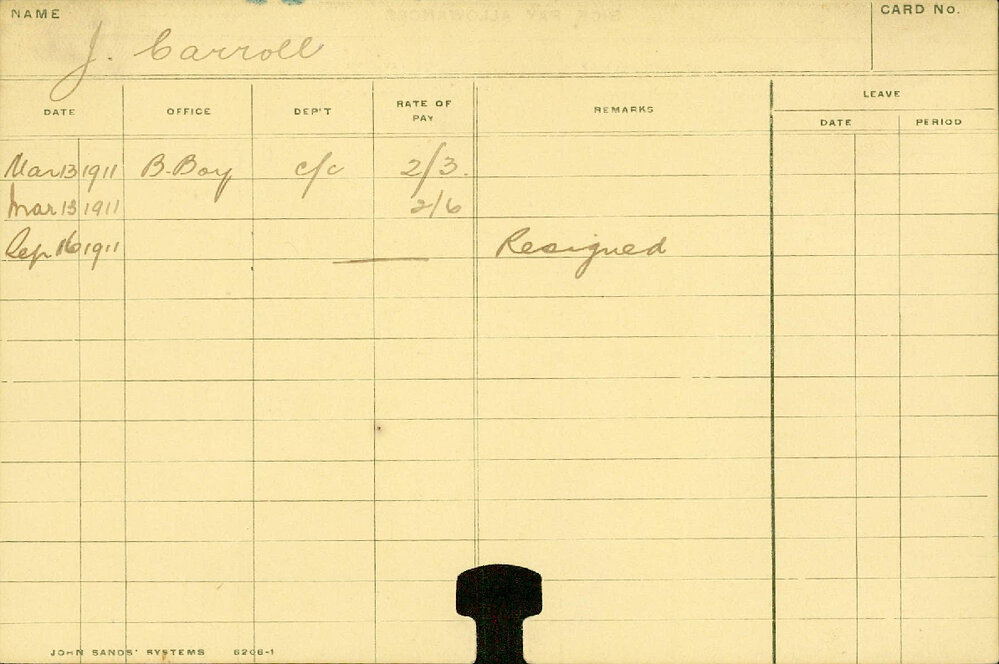 NAME
CARD No.
J. Carroll
LEAVE
DATE OFFICE DEP'T RATE OF PAY REMARKS DATE PERIOD
Mar 13 1911 B. Boy c/c 2/3.
Mar 13 1911 2/6
Sep 16 1911 Resigned
JOHN SANDS' SYSTEMS 6206-1